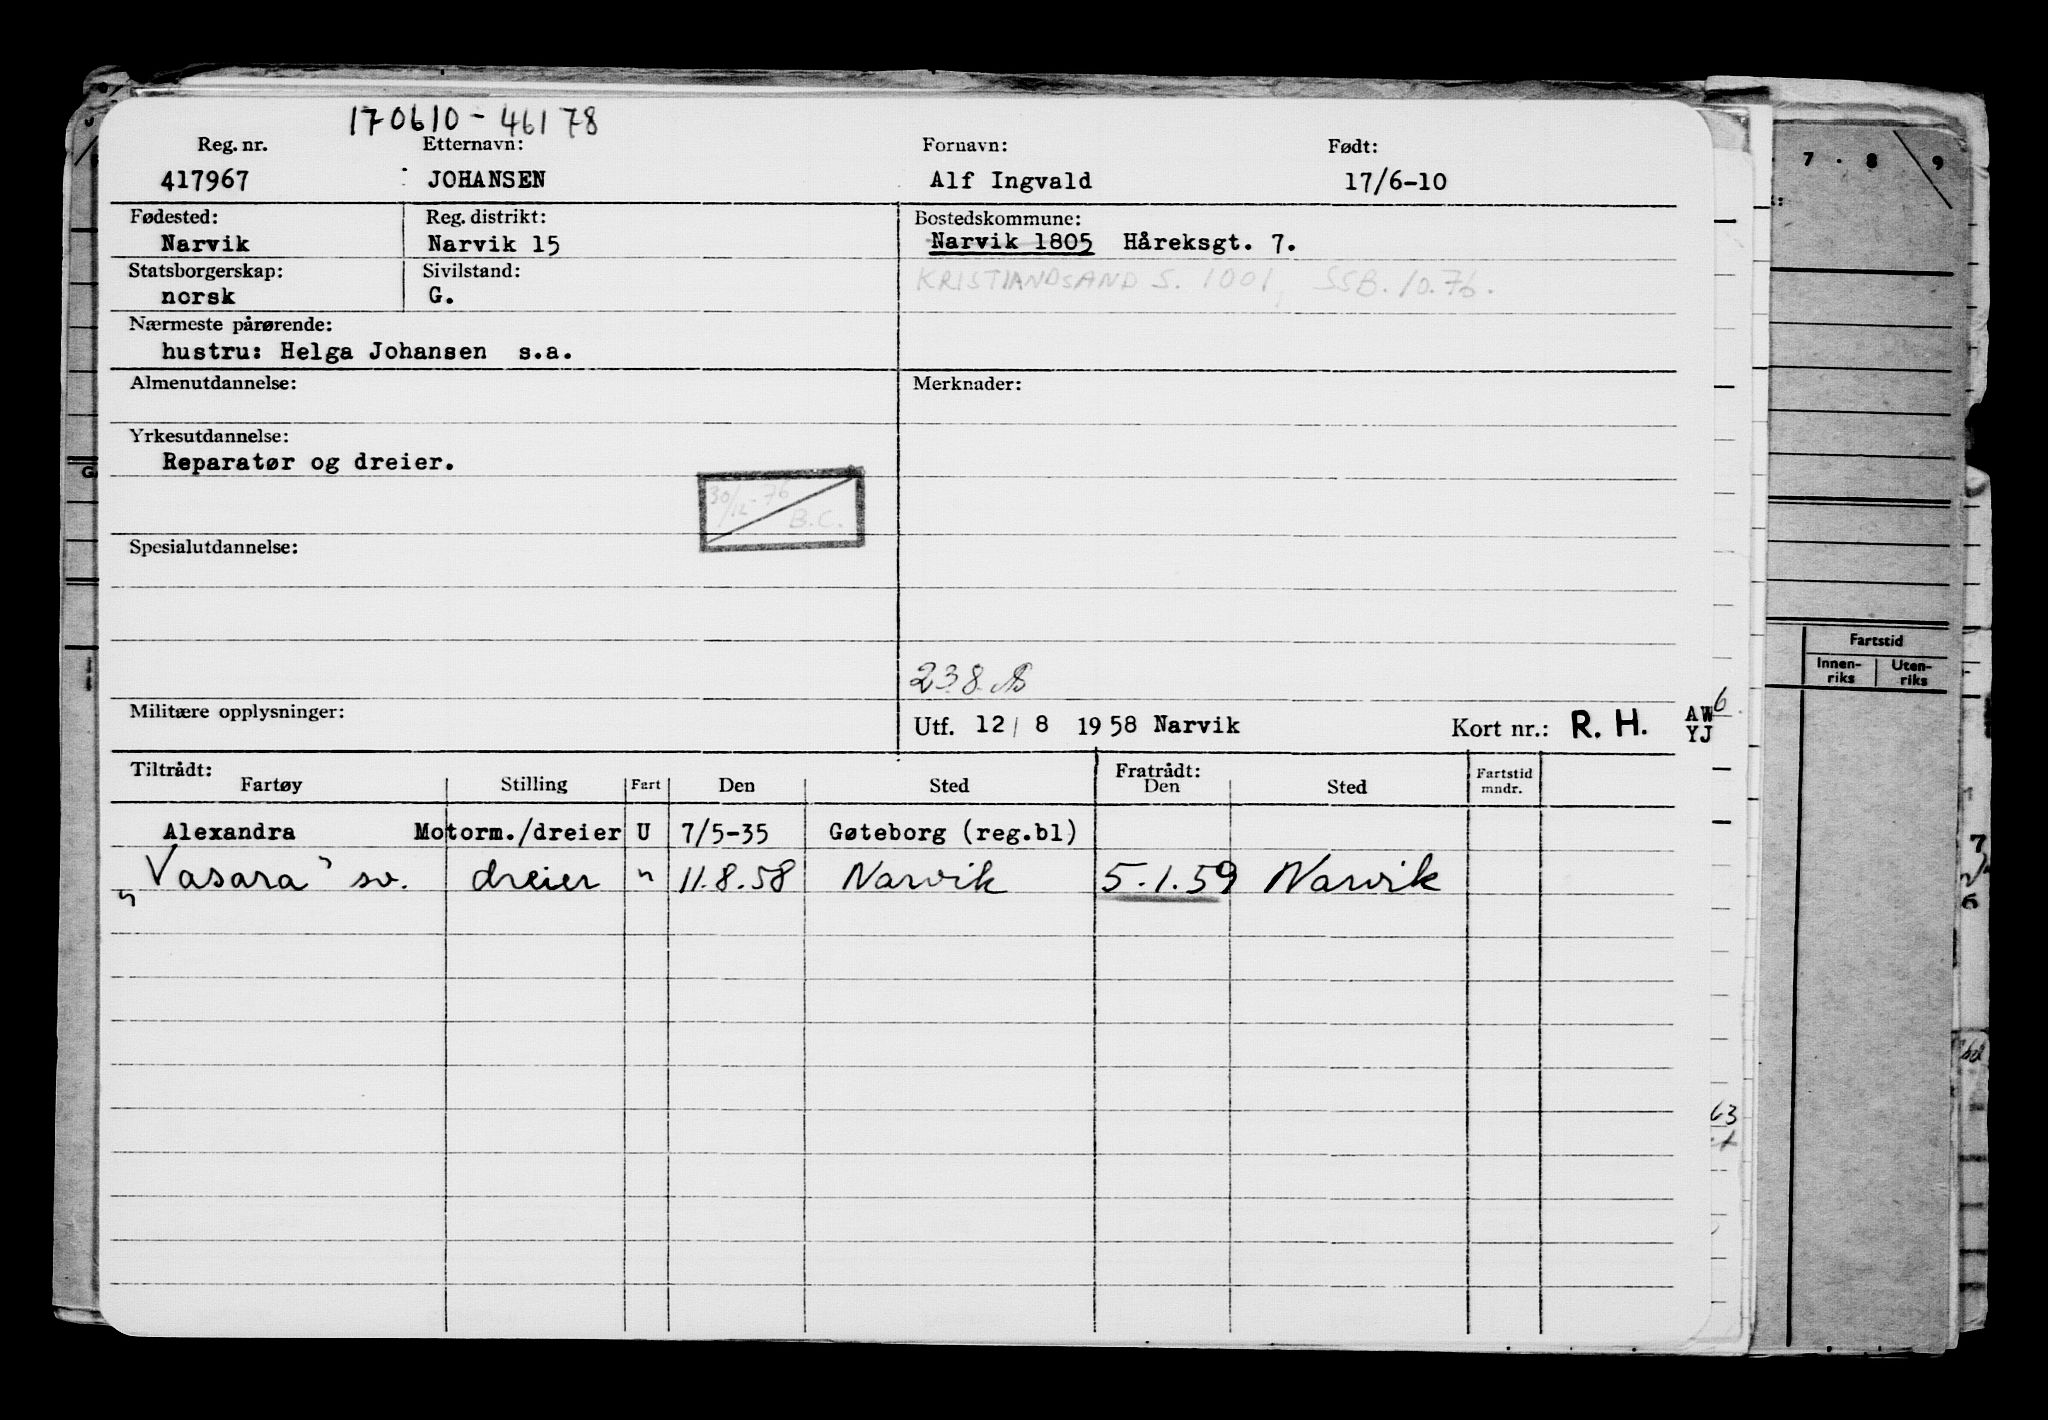 170610-46178
Reg. nr. Etternavn: Fornavn: Født:
417967 JOHANSEN Alf Ingvald 17/6-10
Fødested: Reg. distrikt: Bostedskommune:
Narvik Narvik 15 Narvik 1805 Håreksgt. 7.
Statsborgerskap: Sivilstand: KRISTIANDSAND S. 1001, SSB. 10.76.
norsk G.
Nærmeste pårørende:
hustru: Helga Johansen s.a.
Almenutdannelse: Merknader:
Yrkesutdannelse:
Reparatør og dreier.
30/12-76
B.C.
Spesialutdannelse:
238
Militære opplysninger: Utf. 12/8 1958 Narvik Kort nr.: R. H. AW
YJ
Tiltrådt: Fratrådt:
Fartøy Stilling Fart Den Sted Den Sted Fartstid
mndr.
Alexandra Motorm./dreier U 7/5-35 Gøteborg (reg.bl)
„Vasara" sv. dreier " 11.8.58 Narvik 5.1.59 Narvik
7 . 8 9
Fartstid
Innen-
riks Uten-
riks
6
63
7
6